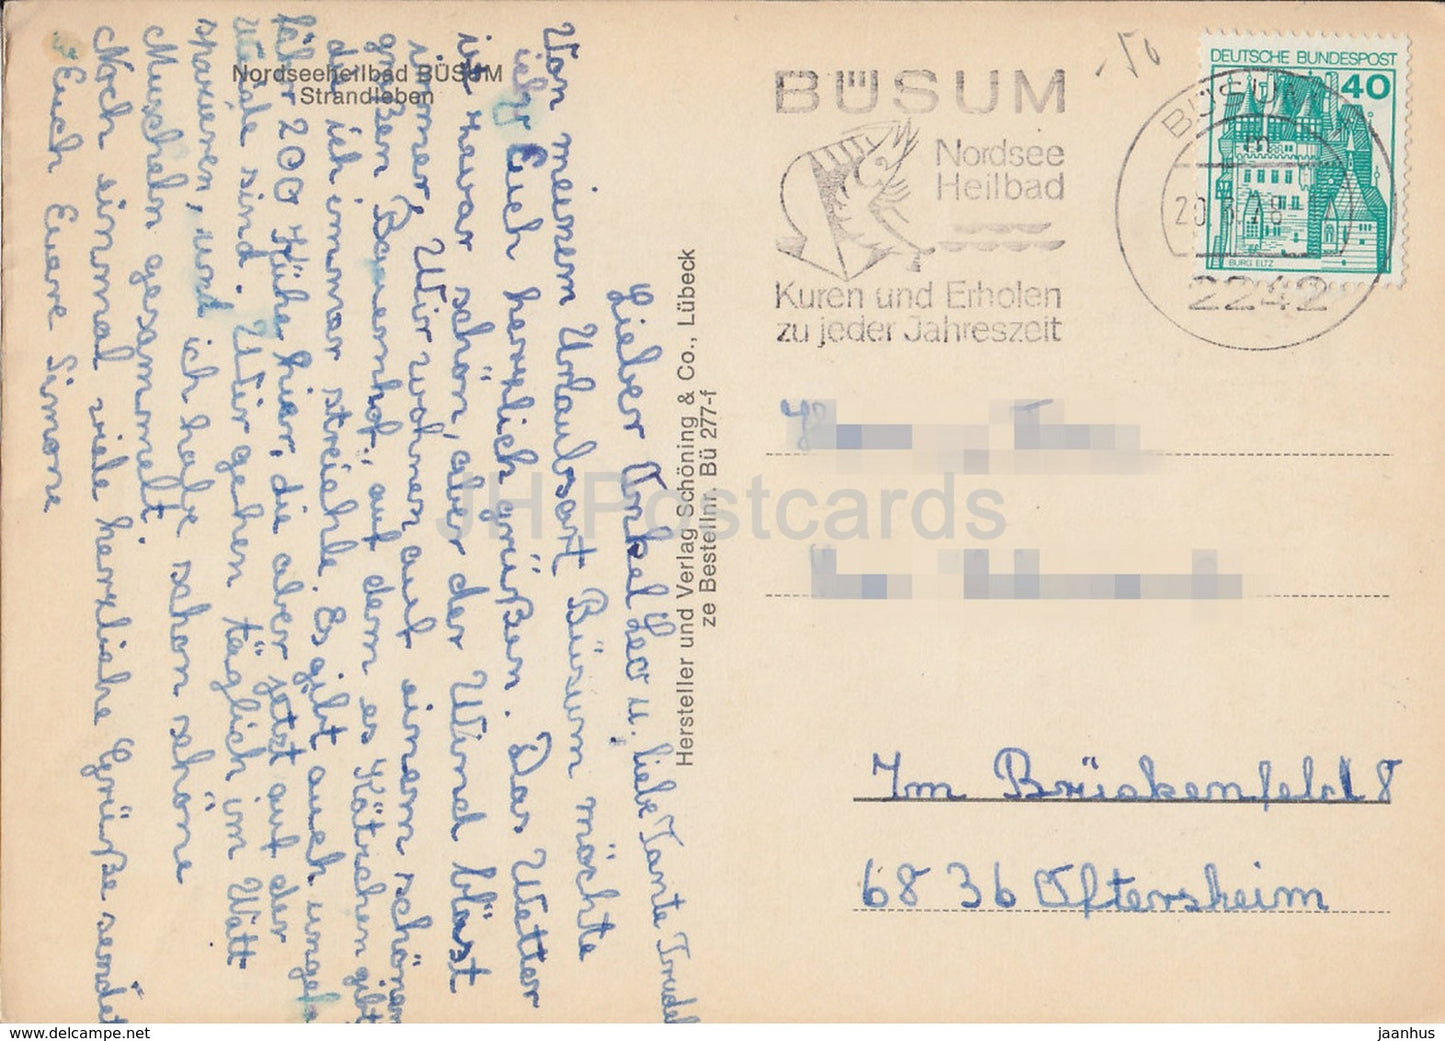 Nordseeheilbad BÜSUM
Strandleben
Lieber Onkel Leo u. liebe Tante Trudel
Von meinem Urlaubsort Büsum möchte
ich Euch herzlich grüßen. Das Wetter
ist zwar schön, aber der Wind bläst
immer. Wir wohnen auf einem schönen
großen Bauernhof, auf dem es Kätzchen gibt
die ich immer streichle. Es gibt auch ungefä
fähr 200 Kühe hier, die aber jetzt auf der
Weide sind. Wir gehen täglich im Watt
spazieren, und ich habe schon schöne
Muscheln gesammelt.
Noch einmal viele herzliche Grüße sendet
Euch Eure Simone
Hersteller und Verlag Schöning & Co., Lübeck
ze Bestellnr. Bü 277-f
-,50
BÜSUM
Nordsee
Heilbad
Kuren und Erholen
zu jeder Jahreszeit
DEUTSCHE BUNDESPOST
40
BURG ELTZ
BÜSUM
m
2242
Im Brückenfeld 8
6836 Oftersheim
JH Postcards
www.delcampe.net
jaanhus